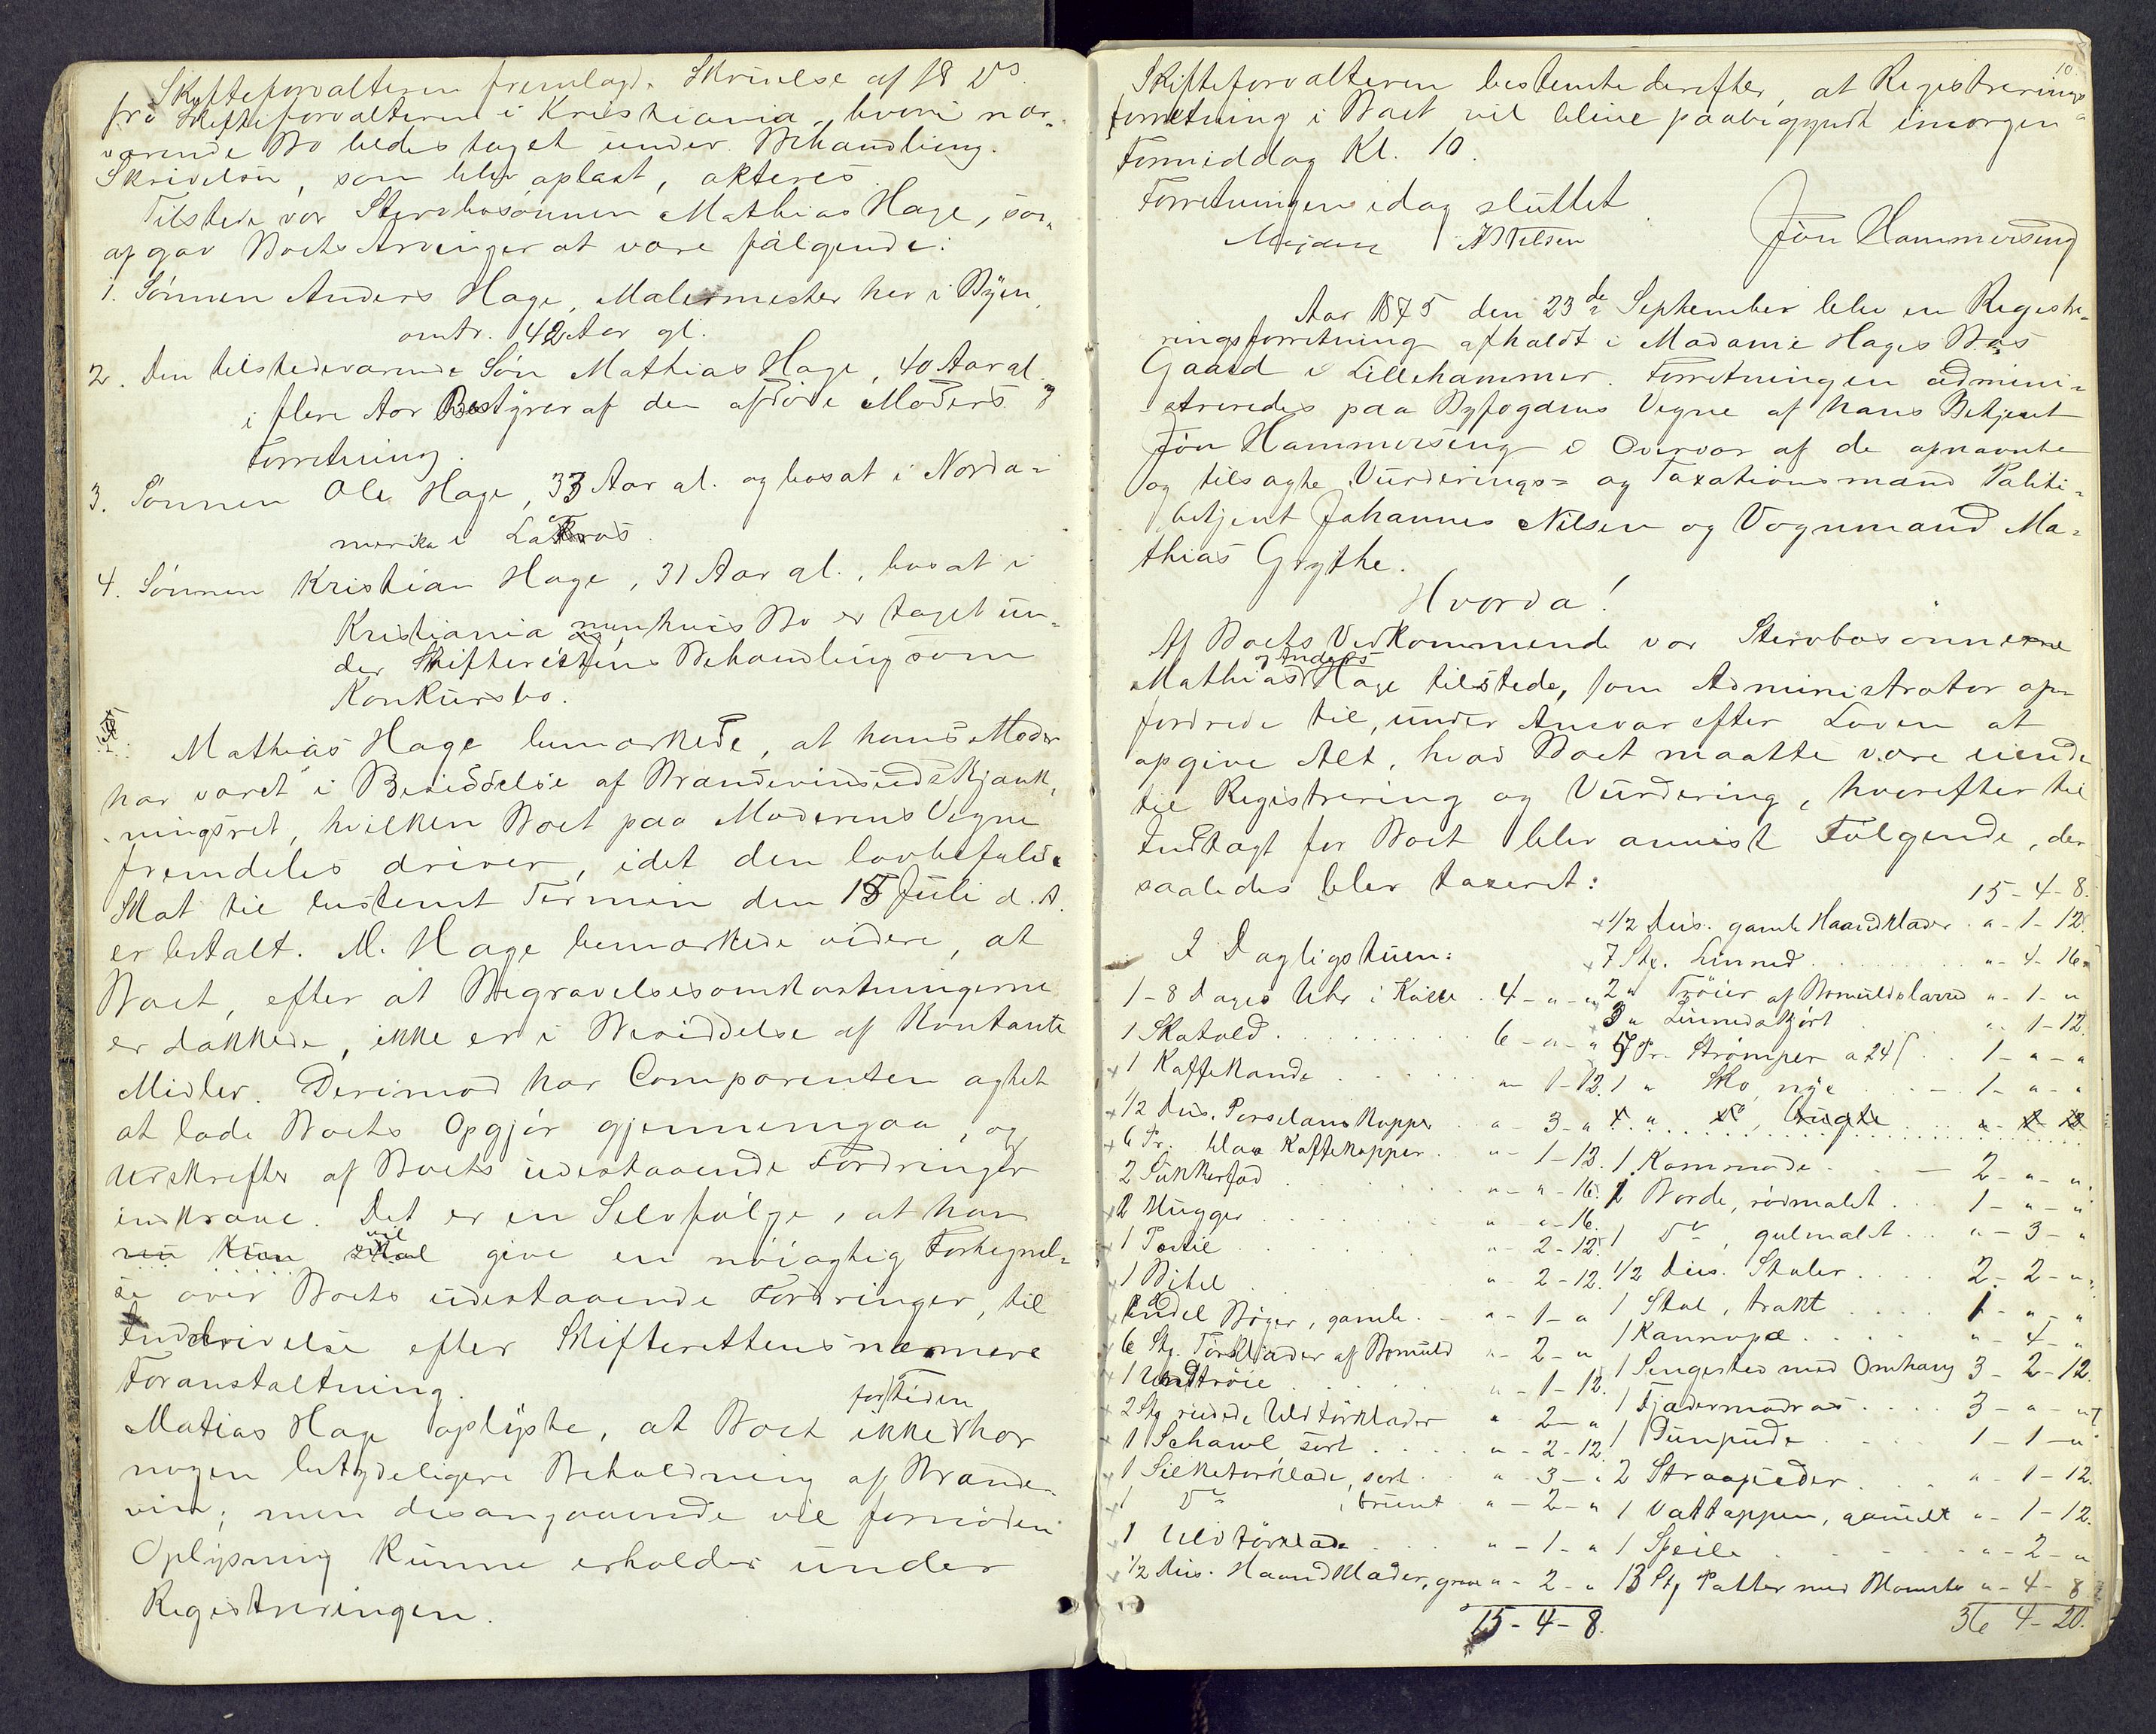 Skifteforvalteren fremlagde Skrivelse af 18 Ds.
fra Skifteforvalteren i Kristiania, hvori nær-
værende Bo bedes taget under Behandling.
Skrivelsen, som blev oplæst, akteres.
Tilstede var Stervbosønnen Mathias Hage, som
opgav Boets Arvinger at være følgende:
1. Sønnen Anders Hage, Malermester her i Byen,
omtr. 42 Aar gl.
2. Den tilstedeværende Søn Mathias Hage, 40 Aar gl.
i flere Aar Bestyrer af den afdøde Moders
Forretning.
3. Sønnen Ole Hage, 33 Aar gl. og bosat i Norda-
merika i
4. Sønnen Kristian Hage, 31 Aar gl., bosat i
Kristiania men hvis Bo er taget un-
der Skifterettens Behandling som
Konkursbo.
Mathias Hage bemærkede, at hans Moder
har været i Besiddelse af Brændevinsudskjænk-
ningsret, hvilken Boet paa Moderens Vegne
fremdeles driver, idet den lovbefalede
Skat til bestemt Termin den 15 Juli d. A.
er betalt. M. Hage bemærkede videre, at
Boet, efter at Begravelsesomkostningerne
er dækkede, ikke er i Besiddelse af Kontante
Midler. Derimod har Comparenten agtet
at lade Boets Opgjør gjennemgaa, og
Udskrifter af Boets udestaaende Fordringer
indkræve. Det er en Selvfølge, at han
vil give en nøiagtig Fortegnel-
se over Boets udestaaende Fordringer, til
Inddrivelse efter Skifterettens nærmere
Foranstaltning.
for Tiden
Matias Hage oplyste, at Boet ikke har
nogen betydeligere Beholdning af Brænde-
vin; men desangaaende vil fornøden
Oplysning kunne erholdes under
Registreringen.
10.
Skifteforvalteren bestemte derefter, at Registrerings-
forretning i Boet vil blive paabegyndt imorgen
Formiddag Kl. 10.
Forretningen idag sluttet
Nilsen Jón Hammerseng
Aar 1875 den 23de September blev en Registre-
ringsforretning afholdt i Madame Hages Bos
Gaard i Lillehammer. Forretningen admini-
streredes paa Byfogdens Vegne af hans Betjent
Jón Hammerseng i Overvær af de opnævnte
og tilsagte Vurderings- og Taxationsmænd Politi-
betjent Johannes Nilsen og Vognmand Ma-
thias Grythe.
Hvorda!
Af Boets Vedkommende var Stervbosønnerne
og Anders
Mathias Hage tilstede, som Administrator op-
fordrede til, under Ansvar efter Loven at
opgive Alt, hvad Boet maatte være eiende
til Registrering og Vurdering, hvorefter til
Indtægt for Boet blev anvist Følgende, der
saaledes blev taxeret:
I Dagligstuen:
1 - 8 Dages Uhr i Kasse . 4 - " - "
1 Skatold . . . 6 - " - "
1 Kaffekande . . . " - 1 - 12.
1/2 Dus. Porselænskopper . " - 3 - "
6 Pr. blaa Kaffekopper . " - 1 - 12.
2 Sukkerfad . . . " - " - 16.
2 Mugger . . . " - " - 16.
1 . . . " - 2 - 12.
1 Bibel . . . " - 2 - 12.
Endel Bøger, gamle . " - 1 - "
6 Stk. Tørklæder af Bomuld " - 2 - "
1 Uldtrøie . . . " - 1 - 12.
2 Stk. Uldtørklæder " - 2 - "
1 Schawl sort . . . " - 2 - 12.
1 Silketørklæde, sort . " - 3 - "
1 Do , brunt " - 2 - "
1 Uldtørklæde . . . " - 1 - "
1/2 Dus. Haandklæder, grove " - 2 - "
15 - 4 - 8.
15 - 4 - 8.
1/2 Dus. gamle Haandklæder . " - 1 - 12.
7 Stk. Linned . . . " - 4 - 16
2 " Trøier af Bomuldslærred " - 1 - "
3 " Linnedskjørt " - 1 - 12.
5 Pr. Strømper a 24 ʃ . . 1 - " - "
1 " Sko, nye . . . 1 - " - "
1 Kommode . . . 2 - " - "
1 Borde, rødmalet . . . 1 - " - "
1 Do, gulmalt . . " - 3 - "
1/2 Dus. Stoler . . . 2 - 2 - "
1 Stol, trakt . . . 1 - " - "
1 Kannape . . . " - 4 - "
1 Sengested med Omhang 3 - 2 - 12.
1 Fjædermadras . . . 3 - " - "
1 Dunpude . . . 1 - 1 - "
2 Straapuder . . . " - 1 - 12.
1 Vattæppen, gamelt " - 1 - 12.
1 Speile . . . " - 2 - "
13 Stk Potter med Blomster " - 4 - 8
36 4 - 20.